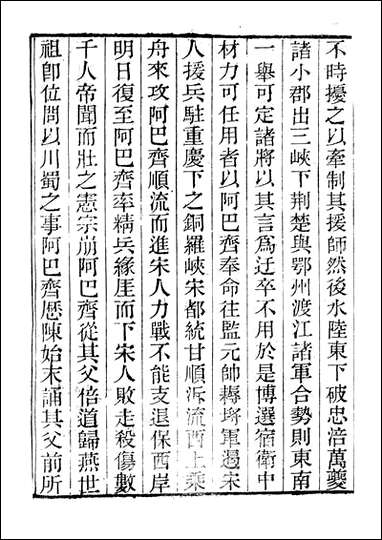 不時擾之以牽制其援師然後水陸東下破忠涪萬夔
諸小郡出三峽下荆楚與鄂州渡江諸軍合勢則東南
一舉可定諸將以其言爲迂卒不用於是博選宿衛中
材力可任用者以阿巴齊奉命往監元帥耨埒軍遏宋
人援兵駐重慶下之銅羅峽宋都統甘順泝流西上乘
舟來攻阿巴齊順流而進宋人力戰不能支退保西岸
明日復至阿巴齊率精兵緣厓而下宋人敗走殺傷數
千人帝聞而壯之憲宗崩阿巴齊從其父倍道歸燕世
祖卽位問以川蜀之事阿巴齊歴陳始末誦其父前所